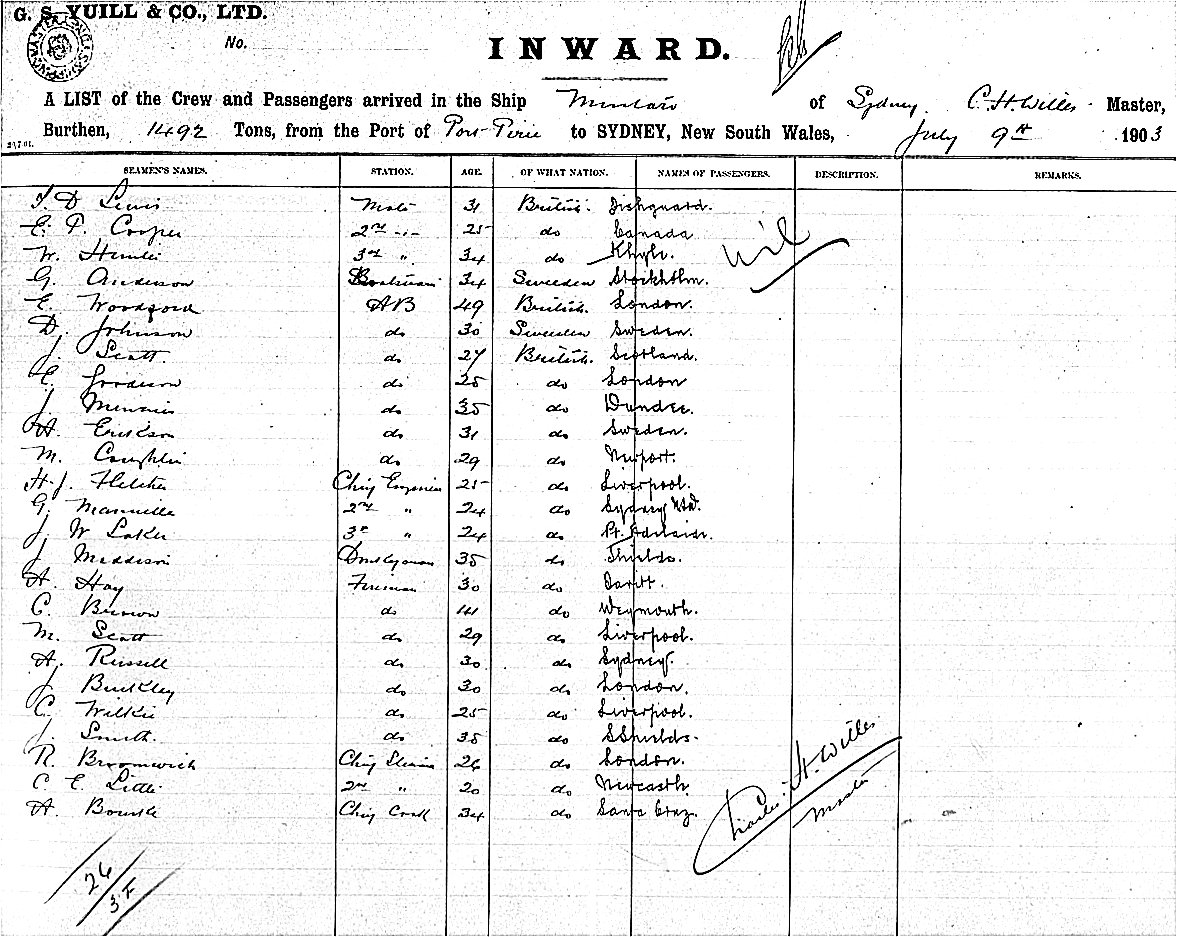 G. S. YUILL & CO., LTD.
No.
INWARD.
A LIST of the Crew and Passengers arrived in the Ship of Sydney, C. H. Willes Master,
Burthen, 1492 Tons, from the Port of Port Pirie to SYDNEY, New South Wales, July 9th 1903
SEAMEN'S NAMES. STATION. AGE. OF WHAT NATION. NAMES OF PASSENGERS. DESCRIPTION. REMARKS.
D Lewis Mate 31 British. Fishguard.
E. P. Cooper 2nd 25 do Canada
W. 3rd " 34 do
G. Anderson 34 Sweeden Stockholm.
E. Woodford AB 49 British. London.
D. Johnson do 30 Sweeden Sweden.
J. Scott do 27 British. Scotland.
E. do 25 do London
J. Menzies do 35 do Dundee.
A. Erikson do 31 do Sweden.
M. Coughlin do 29 do Newport.
H. J. Fletcher Chief Engineer 25 do Liverpool.
G. 2nd " 24 do Sydney NSW.
J. W Laker 3rd " 24 do Pt. Adelaide.
J. Maddison Donkeyman 35 do Shields.
A. Hay Fireman 30 do
C. do do Weymouth.
M. Scott do 29 do Liverpool.
A. Russell do 30 do Sydney.
J. Buckley do 30 do London.
C. Wilkie do 25 do Liverpool.
J. Smith. do 35 do SShields.
R. Broomwich Chief 26 do London.
C. E. 2nd " 20 do Newcastle.
A. Bourke Chief Cook 34 do Santa Cruz.
nil
Charles H. Willes
Master
26